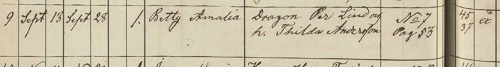 9 Sept 13 Sept 28 1. Betty Amalia Dragon Per Lindong No 7 45
h. Thilda Anderson Pag 53 37